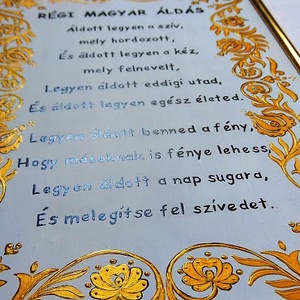 RÉGI MAGYAR ÁLDÁS
Áldott legyen a szív,
mely hordozott,
És áldott legyen a kéz,
mely felnevelt,
Legyen áldott eddigi utad,
És áldott legyen egész életed.
Legyen áldott benned a fény,
Hogy másoknak is fénye lehess,
Legyen áldott a nap sugara,
És melegítse fel szívedet.